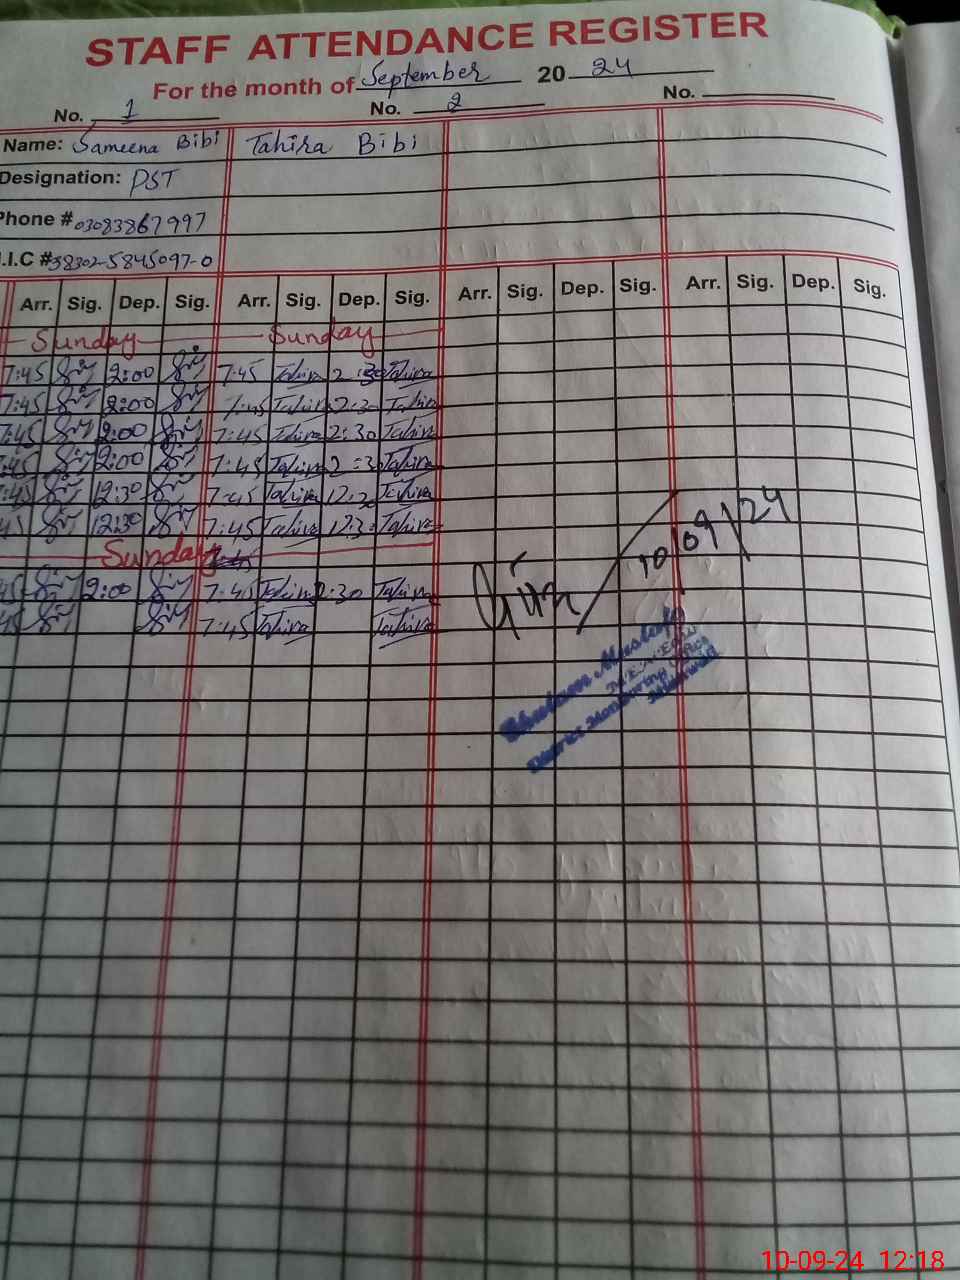 STAFF ATTENDANCE REGISTER
For the month of September 2024
No. 1 No. 2 No.
Name: Sameena Bibi Tahira Bibi
Designation: PST
Phone # 03083867997
.I.C # 38302-5845097-0
Arr. Sig. Dep. Sig. Arr. Sig. Dep. Sig. Arr. Sig. Dep. Sig. Arr. Sig. Dep. Sig.
Sunday Sunday
7:45 2:00 7:45 Tahira 2:30 Tahira
7:45 2:00 7:45 Tahira 2:30 Tahira
7:45 2:00 7:45 Tahira 2:30 Tahira
7:45 2:00 7:45 Tahira 2:30 Tahira
7:45 12:30 7:45 Tahira Tahira
45 12:30 7:45 Tahira 12:3 Tahira
Sunday
45 2:00 7:45 Tahira 2:30 Tahira
45 7:45 Tahira Tahira
10/09/24
Ghulam Mustafa
District Monitoring Office
10-09-24 12:18